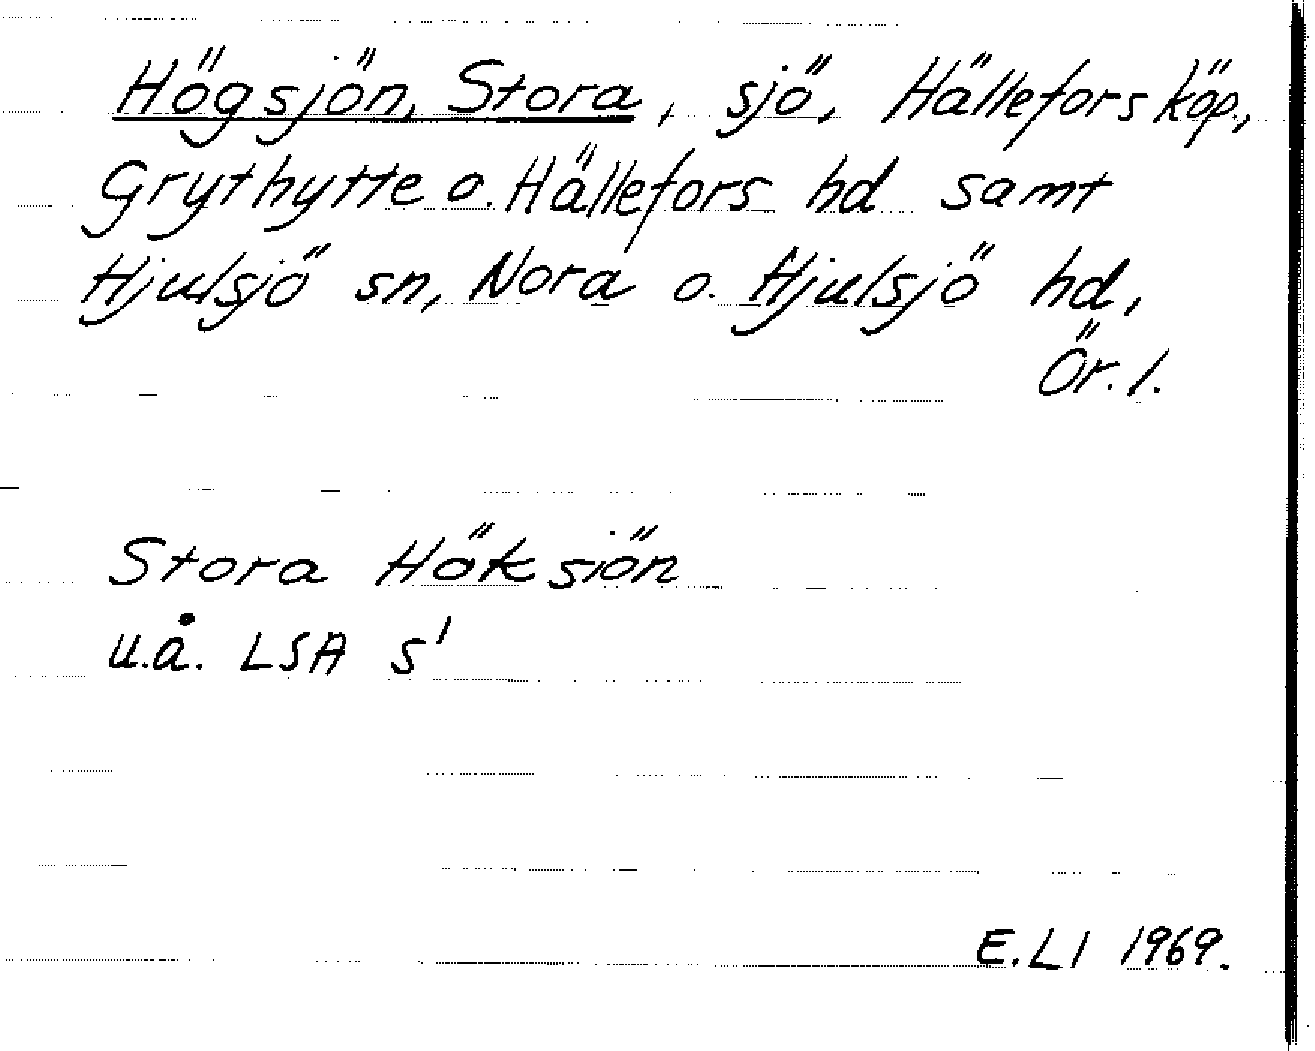 Högsjön, Stora, sjö, Hällefors köp.,
Grythytte o. Hällefors hd samt
Hjulsjö sn, Nora o. Hjulsjö hd,
Ör. l.
Stora Höksiön
u.å. LSA S'
E.LI 1969.